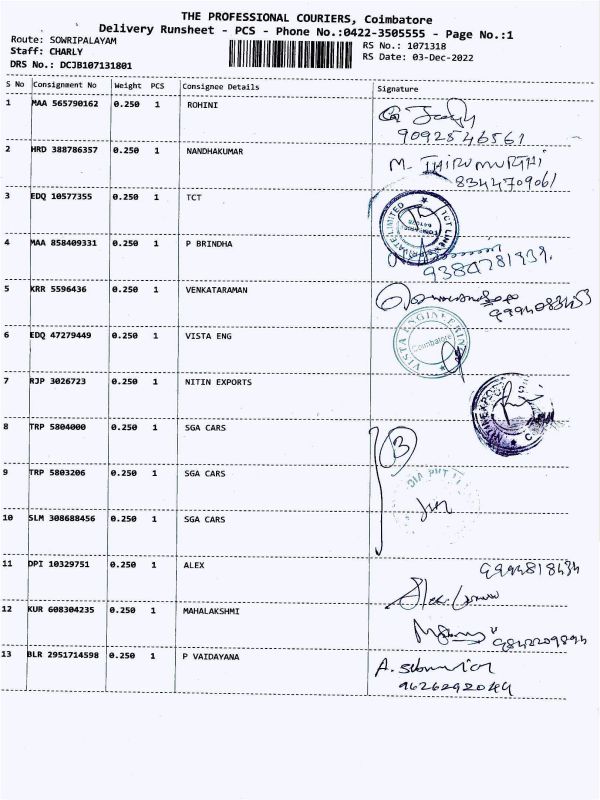 THE PROFESSIONAL COURIERS, Coimbatore
Delivery Runsheet - PCS - Phone No.:0422-3505555 - Page No.:1
Route: SOWRIPALAYAM
Staff: CHARLY
DRS No.: DCJB107131801
RS No.: 1071318
RS Date: 03-Dec-2022
S No Consignment No Weight PCS Consignee Details Signature
1 MAA 565790162 0.250 1 ROHINI
9092546561
2 HRD 388786357 0.250 1 NANDHAKUMAR M. THIRUMURTHI
8344709061
3 EDQ 10577355 0.250 1 TCT
4 MAA 858409331 0.250 1 P BRINDHA
9384781939.
5 KRR 5596436 0.250 1 VENKATARAMAN
6 EDQ 47279449 0.250 1 VISTA ENG VISTA ENGINEERING Coimbatore
7 RJP 3026723 0.250 1 NITIN EXPORTS
8 TRP 5804000 0.250 1 SGA CARS 3
9 TRP 5803206 0.250 1 SGA CARS
10 SLM 308688456 0.250 1 SGA CARS
11 DPI 10329751 0.250 1 ALEX
12 KUR 608304235 0.250 1 MAHALAKSHMI
13 BLR 2951714598 0.250 1 P VAIDAYANA